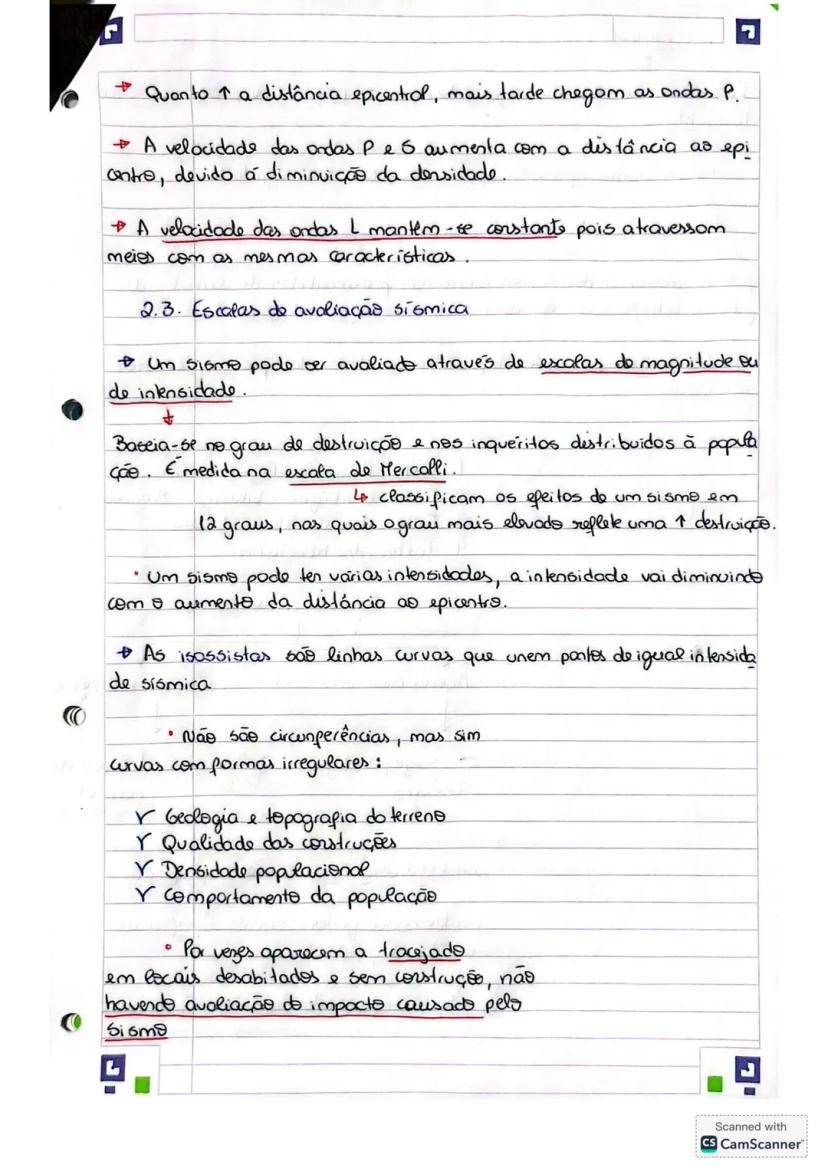 → Quanto ↑ a distância epicentral, mais tarde chegam as ondas P.
→ A velocidade das ondas P e S aumenta com a distância ao epi
centro, devido á diminuição da densidade.
→ A velocidade das ondas L mantém-se constante pois atravessam
meios com as mesmas características.
2.3. Escalas de avaliação sísmica
→ Um sismo pode ser avaliado através de escalas de magnitude ou
de intensidade.
↓
Baseia-se no grau de destruição e nos inquéritos distribuidos à popula
ção. É medida na escala de Mercalli.
↳ classificam os efeitos de um sismo em
12 graus, nas quais o grau mais elevado reflete uma ↑ destruição.
• Um sismo pode ter várias intensidades, a intensidade vai diminuindo
com o aumento da distância ao epicentro.
→ As isossistas são linhas curvas que unem pontos de igual intensida
de sísmica
• Não são circunferências, mas sim
curvas com formas irregulares:
Geologia e topografia do terreno
Qualidade das construções
Densidade populacional
Comportamento da população
• Por vezes aparecem a tracejado
em locais desabitados e sem construção, não
havendo avaliação do impacto causado pelo
sismo
Scanned with
CS CamScanner